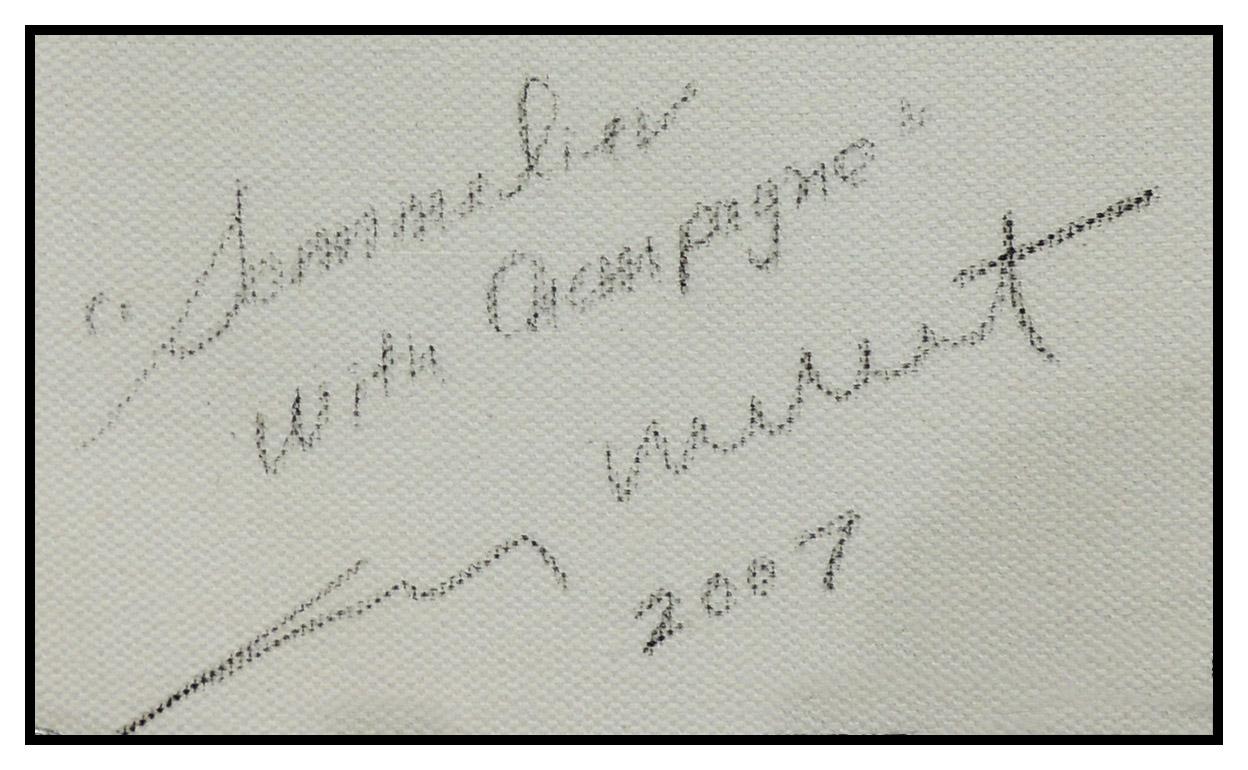 "Sommelier
With Champagne"
2007